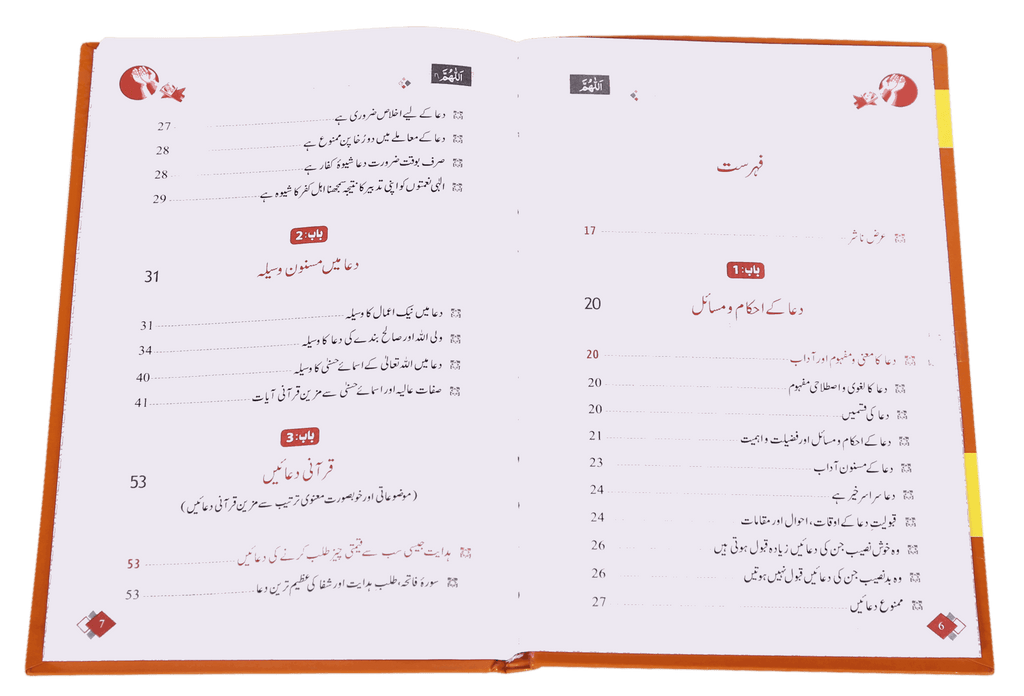 اَللّٰهُمَّ
فہرست
عرض ناشر 17
باب: 1
دعا کے احکام و مسائل 20
دعا کا معنی و مفہوم اور آداب 20
دعا کا لغوی و اصطلاحی مفہوم 20
دعا کی قسمیں 20
دعا کے احکام و مسائل اور فضیلت و اہمیت 21
دعا کے مسنون آداب 23
دعا سراسر خیر ہے 24
قبولیتِ دعا کے اوقات، احوال اور مقامات 24
وہ خوش نصیب جن کی دعائیں زیادہ قبول ہوتی ہیں 26
وہ بدنصیب جن کی دعائیں قبول نہیں ہوتیں 26
ممنوع دعائیں 27
6
اَللّٰهُمَّ
دعا کے لیے اخلاص ضروری ہے 27
دعا کے معاملے میں دوڑخا پن ممنوع ہے 28
صرف بوقت ضرورت دعا شیوۂ کفار ہے 28
الٰہی نعمتوں کو اپنی تدبیر کا نتیجہ سمجھنا اہل کفر کا شیوہ ہے 29
باب: 2
دعا میں مسنون وسیلہ 31
دعا میں نیک اعمال کا وسیلہ 31
ولی اللہ اور صالح بندے کی دعا کا وسیلہ 34
دعا میں اللہ تعالیٰ کے اسمائے حسنٰی کا وسیلہ 40
صفات عالیہ اور اسمائے حسنٰی سے مزین قرآنی آیات 41
باب: 3
قرآنی دعائیں 53
(موضوعاتی اور خوبصورت معنوی ترتیب سے مزین قرآنی دعائیں)
ہدایت جیسی سب سے قیمتی چیز طلب کرنے کی دعائیں 53
سورۂ فاتحہ، طلب ہدایت اور شفا کی عظیم ترین دعا 53
7